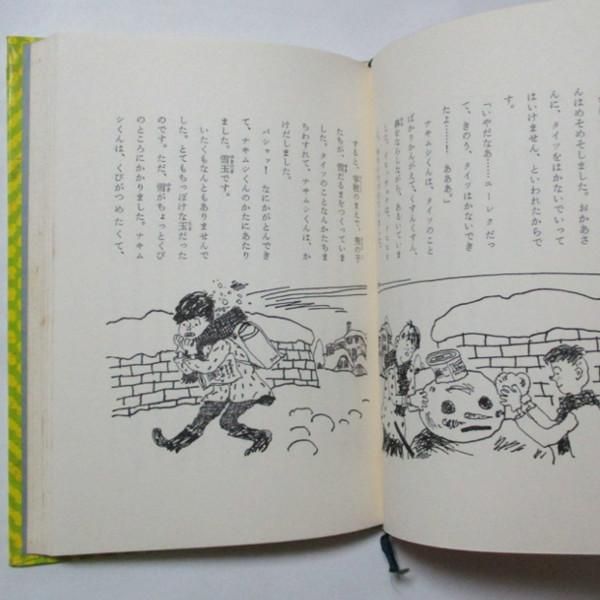 んはめそめそしました。おかあさ
んに、タイツをはかないでいって
はいけません、といわれたからで
す。
「いやだなあ……ユーレクだっ
て、きのう、タイツはかないでき
たよ……！ あああ。」
ナサムシくんは、タイツのこと
ばかりかんがえて、くすんくすん、
鼻をならしながら、あるいていま
した。
すると、学校のまえで、男の子
たちが、雪だるまをつくっていま
した。タイツのことなんかたちま
ちわすれて、ナサムシくんは、か
けだしました。
パシャッ！ なにかがとんでき
て、ナサムシくんのかたにあたり
ました。雪玉です。
いたくもなんともありませんで
した。とてもちっぽけな玉だった
のです。ただ、雪がちょっとくび
のところにかかりました。ナサム
シくんは、くびがつめたくて、